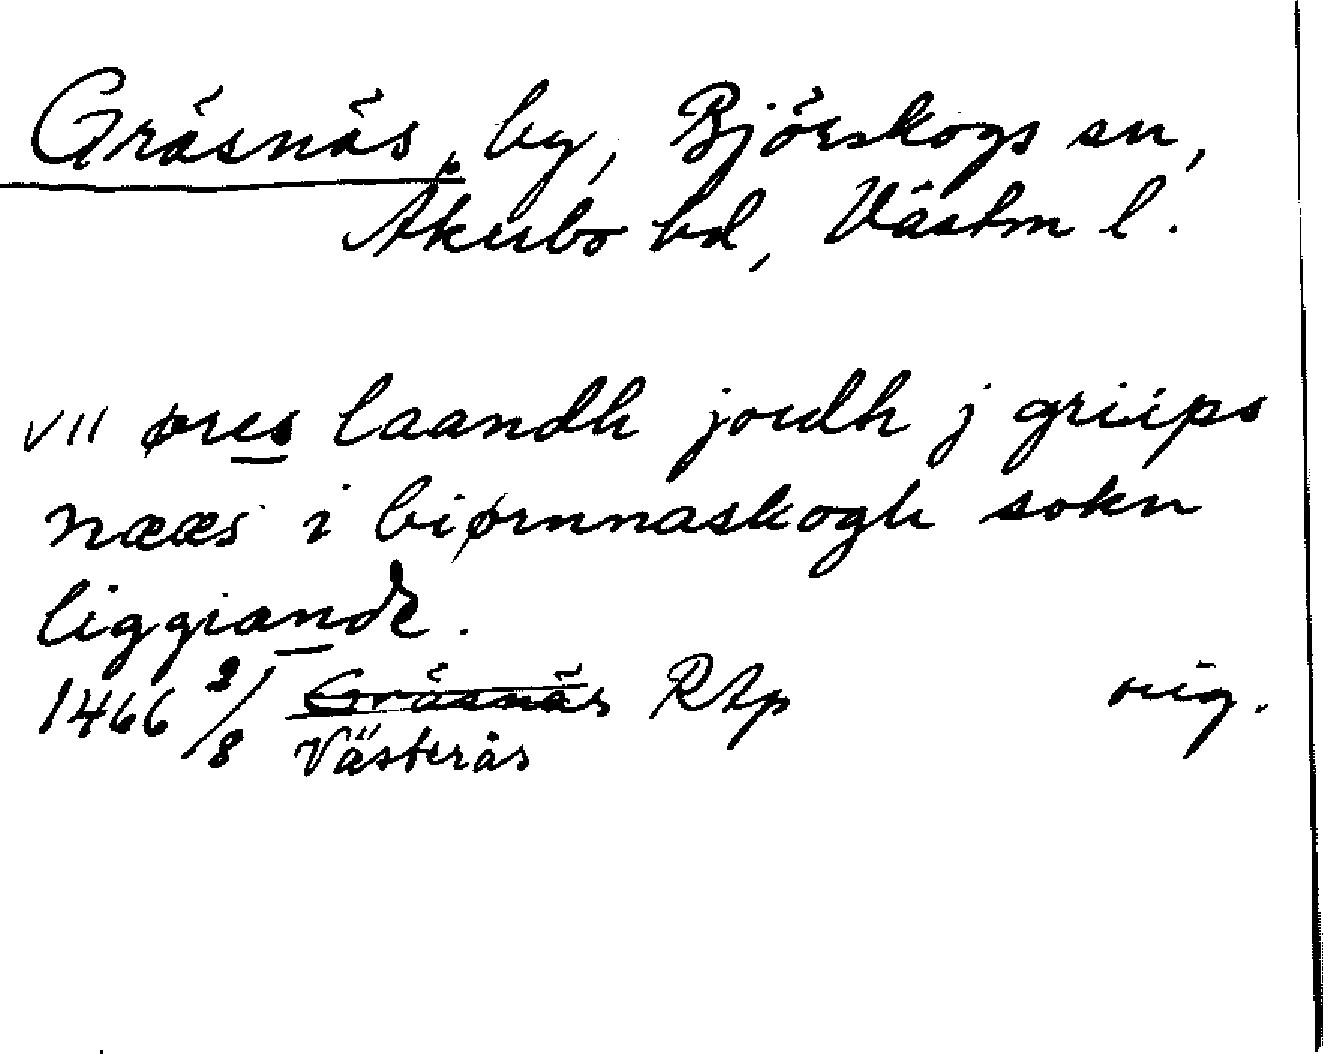 Gräsnäs, by, Björskogs sn,
Åkerbo hd, Västm l.
VII øres laandh jordh j griips
nææs i biørnnaskogh sokn
liggiande.
1466 2/8 Gräsnäs RAp orig.
Västerås